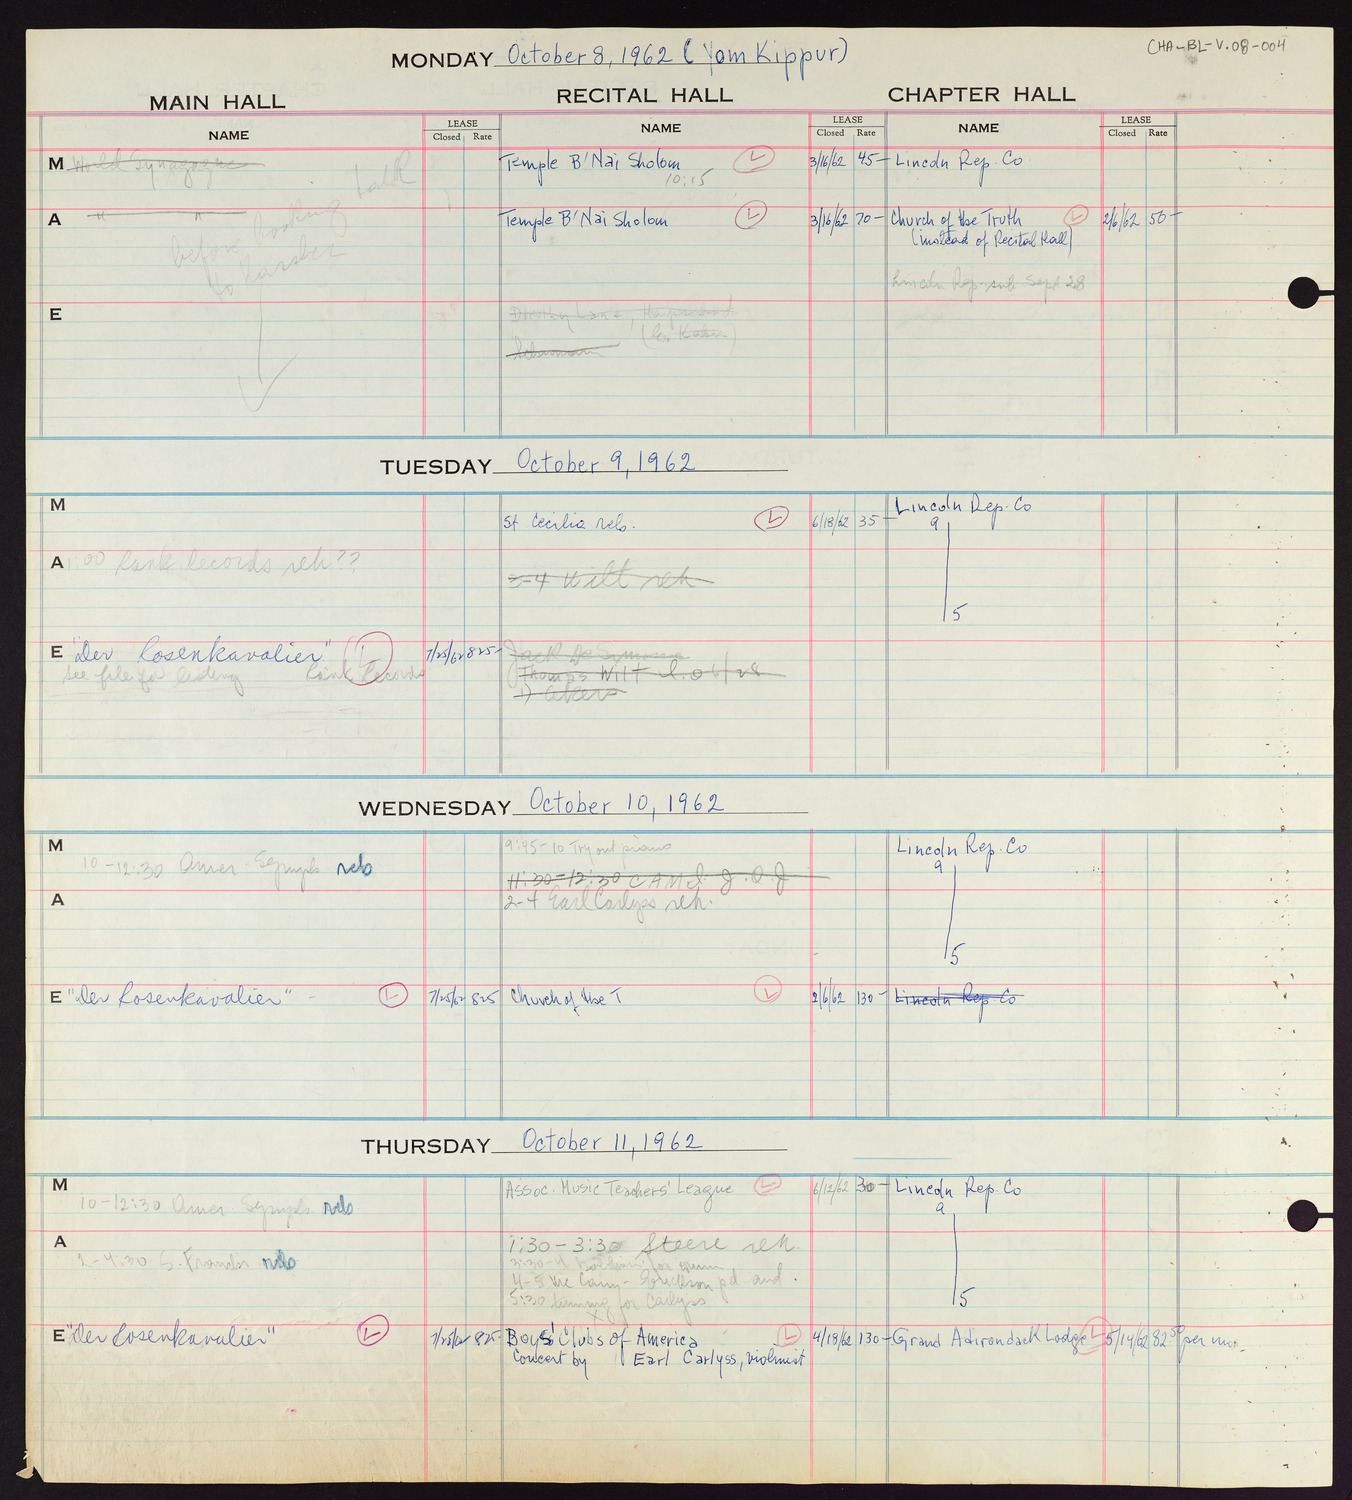 CHA-BL-V.08-004
MONDAY October 8, 1962 (Yom Kippur)
MAIN HALL RECITAL HALL CHAPTER HALL
NAME LEASE Closed Rate NAME LEASE Closed Rate NAME LEASE Closed Rate
M World Synagogue Temple B'Nai Sholom 3/16/62 45- Lincoln Rep. Co
10:15
talk
A " " Temple B'Nai Sholom 3/16/62 70- Church of the Truth 2/6/62 50-
(instead of Recital Hall)
before booking
to
Lincoln Rep. sub Sept 28
E Dorothy Lane, Harpsichord
(E. Kahn)
TUESDAY October 9, 1962
M Lincoln Rep. Co
St Cecilia reh. 6/18/62 35- 9
A :00 Rank Records reh??
3-4 Wilt reh
5
E "Der Rosenkavalier" 7/25/62 825- Jack De Simone
see file for Rank Records Thomas Wilt
1) Akers
WEDNESDAY October 10, 1962
M 9:45-10 Try out piano Lincoln Rep. Co
10-12:30 Amer. Symph reh 9
11:30-12:30 CAMI
A 2-4 Earl Carlyss reh.
5
E "Der Rosenkavalier" 7/25/62 825 Church of the T 2/6/62 130- Lincoln Rep. Co
THURSDAY October 11, 1962
M Assoc. Music Teachers' League 6/12/62 30- Lincoln Rep. Co
10-12:30 Amer. Symph reh 9
A 1:30-3:30 Steere reh.
2-4:30 S. Franko reh
5:30 tuning for Carlyss
5
E "Der Rosenkavalier" 7/25/62 825- Boys' Clubs of America 4/19/62 130- Grand Adirondack Lodge 5/14/62 82 50 per mo.
Concert by Earl Carlyss, violinist